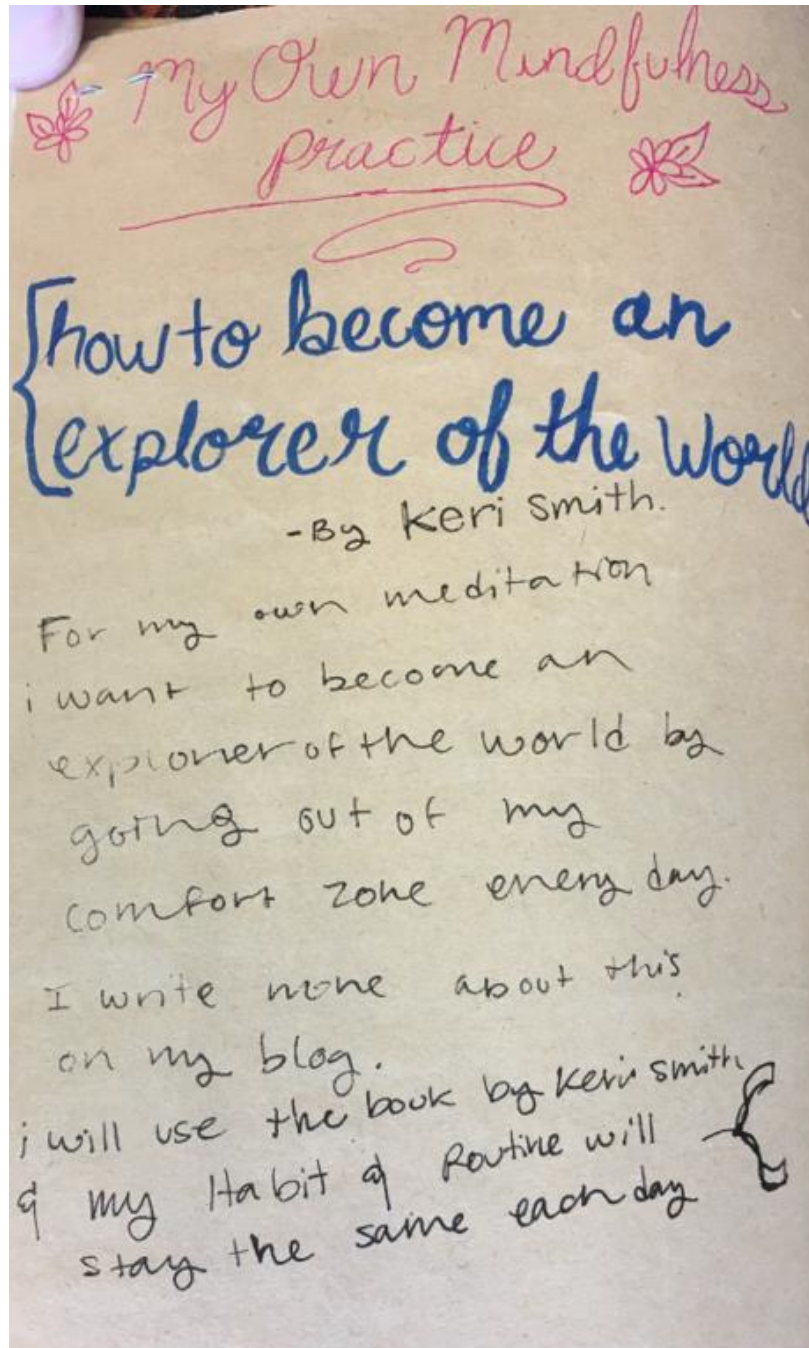 My Own Mindfulness
practice
how to become an
explorer of the World
-By Keri Smith.
For my own meditation
i want to become an
explorer of the world by
going out of my
comfort zone every day.
I write more about this
on my blog.
i will use the book by Keri Smith
& my Habit & Routine will
stay the same each day